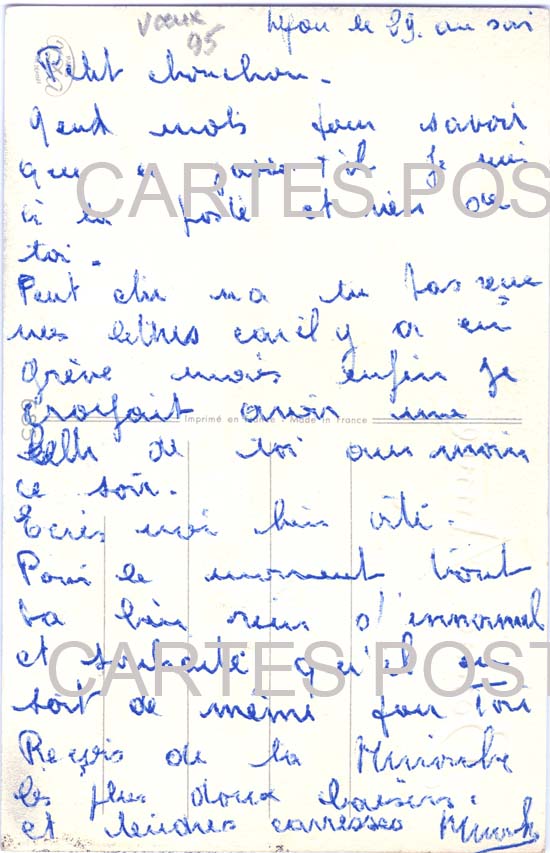 Voeux
95
Lyon le 29. au soir
Petit chouchou.
Qend mots pour savoir
que passe t'il Je suis
à la poste et rien de
toi.
Peut etre n a tu pas reçue
mes lettres car il y a eu
grève mais enfin je
croyait avoir une
Imprimé en France - Made in France
lettre de toi au moin
ce soir.
Ecris moi bien vite.
Pour le moment tout
va bien rien d'innormal
et souhaite qu'il en
soit de même pour Toi
Reçois de la
les plus doux baisers.
et tendres carresses
CARTES POST
CARTES POST